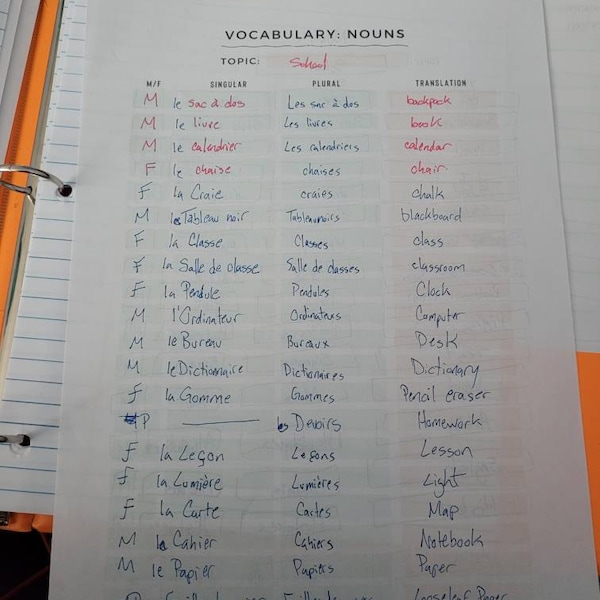 VOCABULARY: NOUNS
TOPIC: School
M/F SINGULAR PLURAL TRANSLATION
M le sac à dos Les sac à dos backpack
M le livre Les livres book
M le calendrier Les calendriers calendar
F le chaise chaises chair
F la Craie craies chalk
M le Tableau noir Tableaunoirs blackboard
F la Classe Classes class
F la Salle de classe Salle de classes classroom
F la Pendule Pendules Clock
M l'Ordinateur Ordinateurs Computer
M le Bureau Bureaux Desk
M le Dictionnaire Dictionaires Dictionary
F la Gomme Gommes Pencil eraser
P les Devoirs Homework
F la Leçon Leçons Lesson
F la Lumière Lumières Light
F la Carte Cartes Map
M le Cahier Cahiers Notebook
M le Papier Papiers Paper
Looseleaf Paper